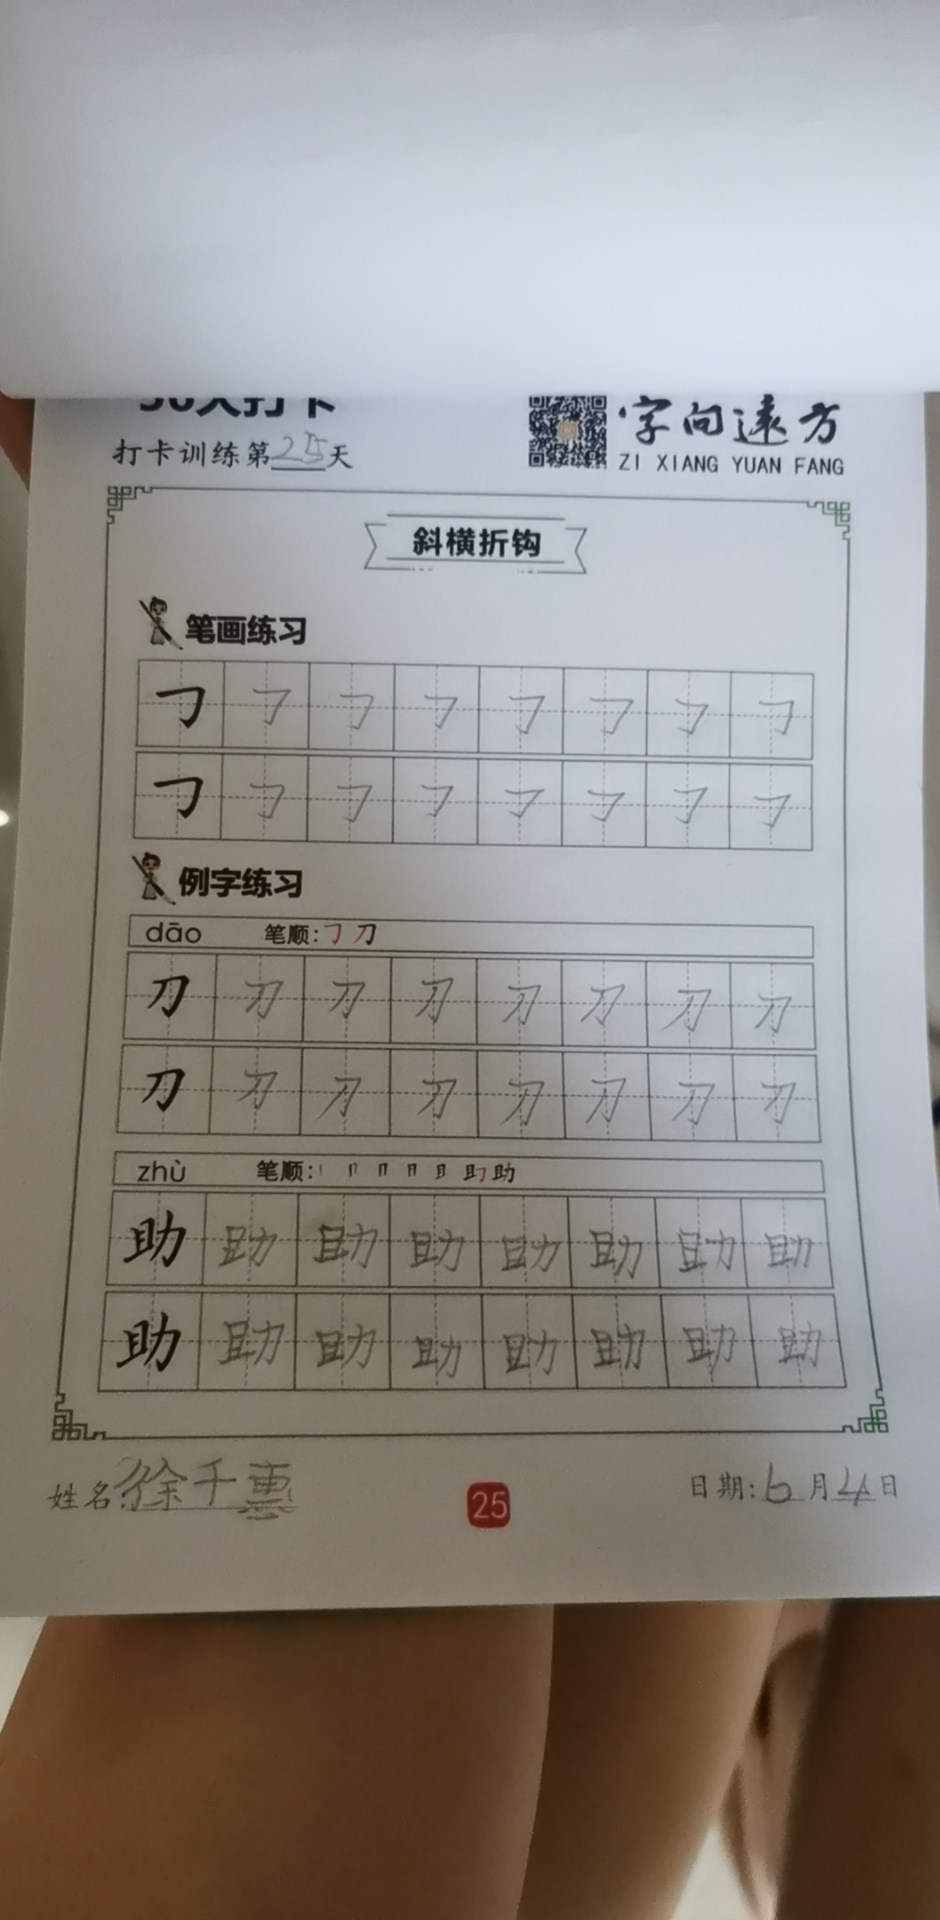 30天打卡
字向远方
打卡训练第25天
ZI XIANG YUAN FANG
斜横折钩
笔画练习
㇆ ㇆ ㇆ ㇆ ㇆ ㇆ ㇆ ㇆
㇆ ㇆ ㇆ ㇆ ㇆ ㇆ ㇆ ㇆
例字练习
dāo 笔顺:㇆ 刀
刀 刀 刀 刀 刀 刀 刀 刀
刀 刀 刀 刀 刀 刀 刀 刀
zhù 笔顺:
助 助 助 助 助 助 助 助
助 助 助 助 助 助 助 助
姓名:徐千惠
25
日期:6月4日